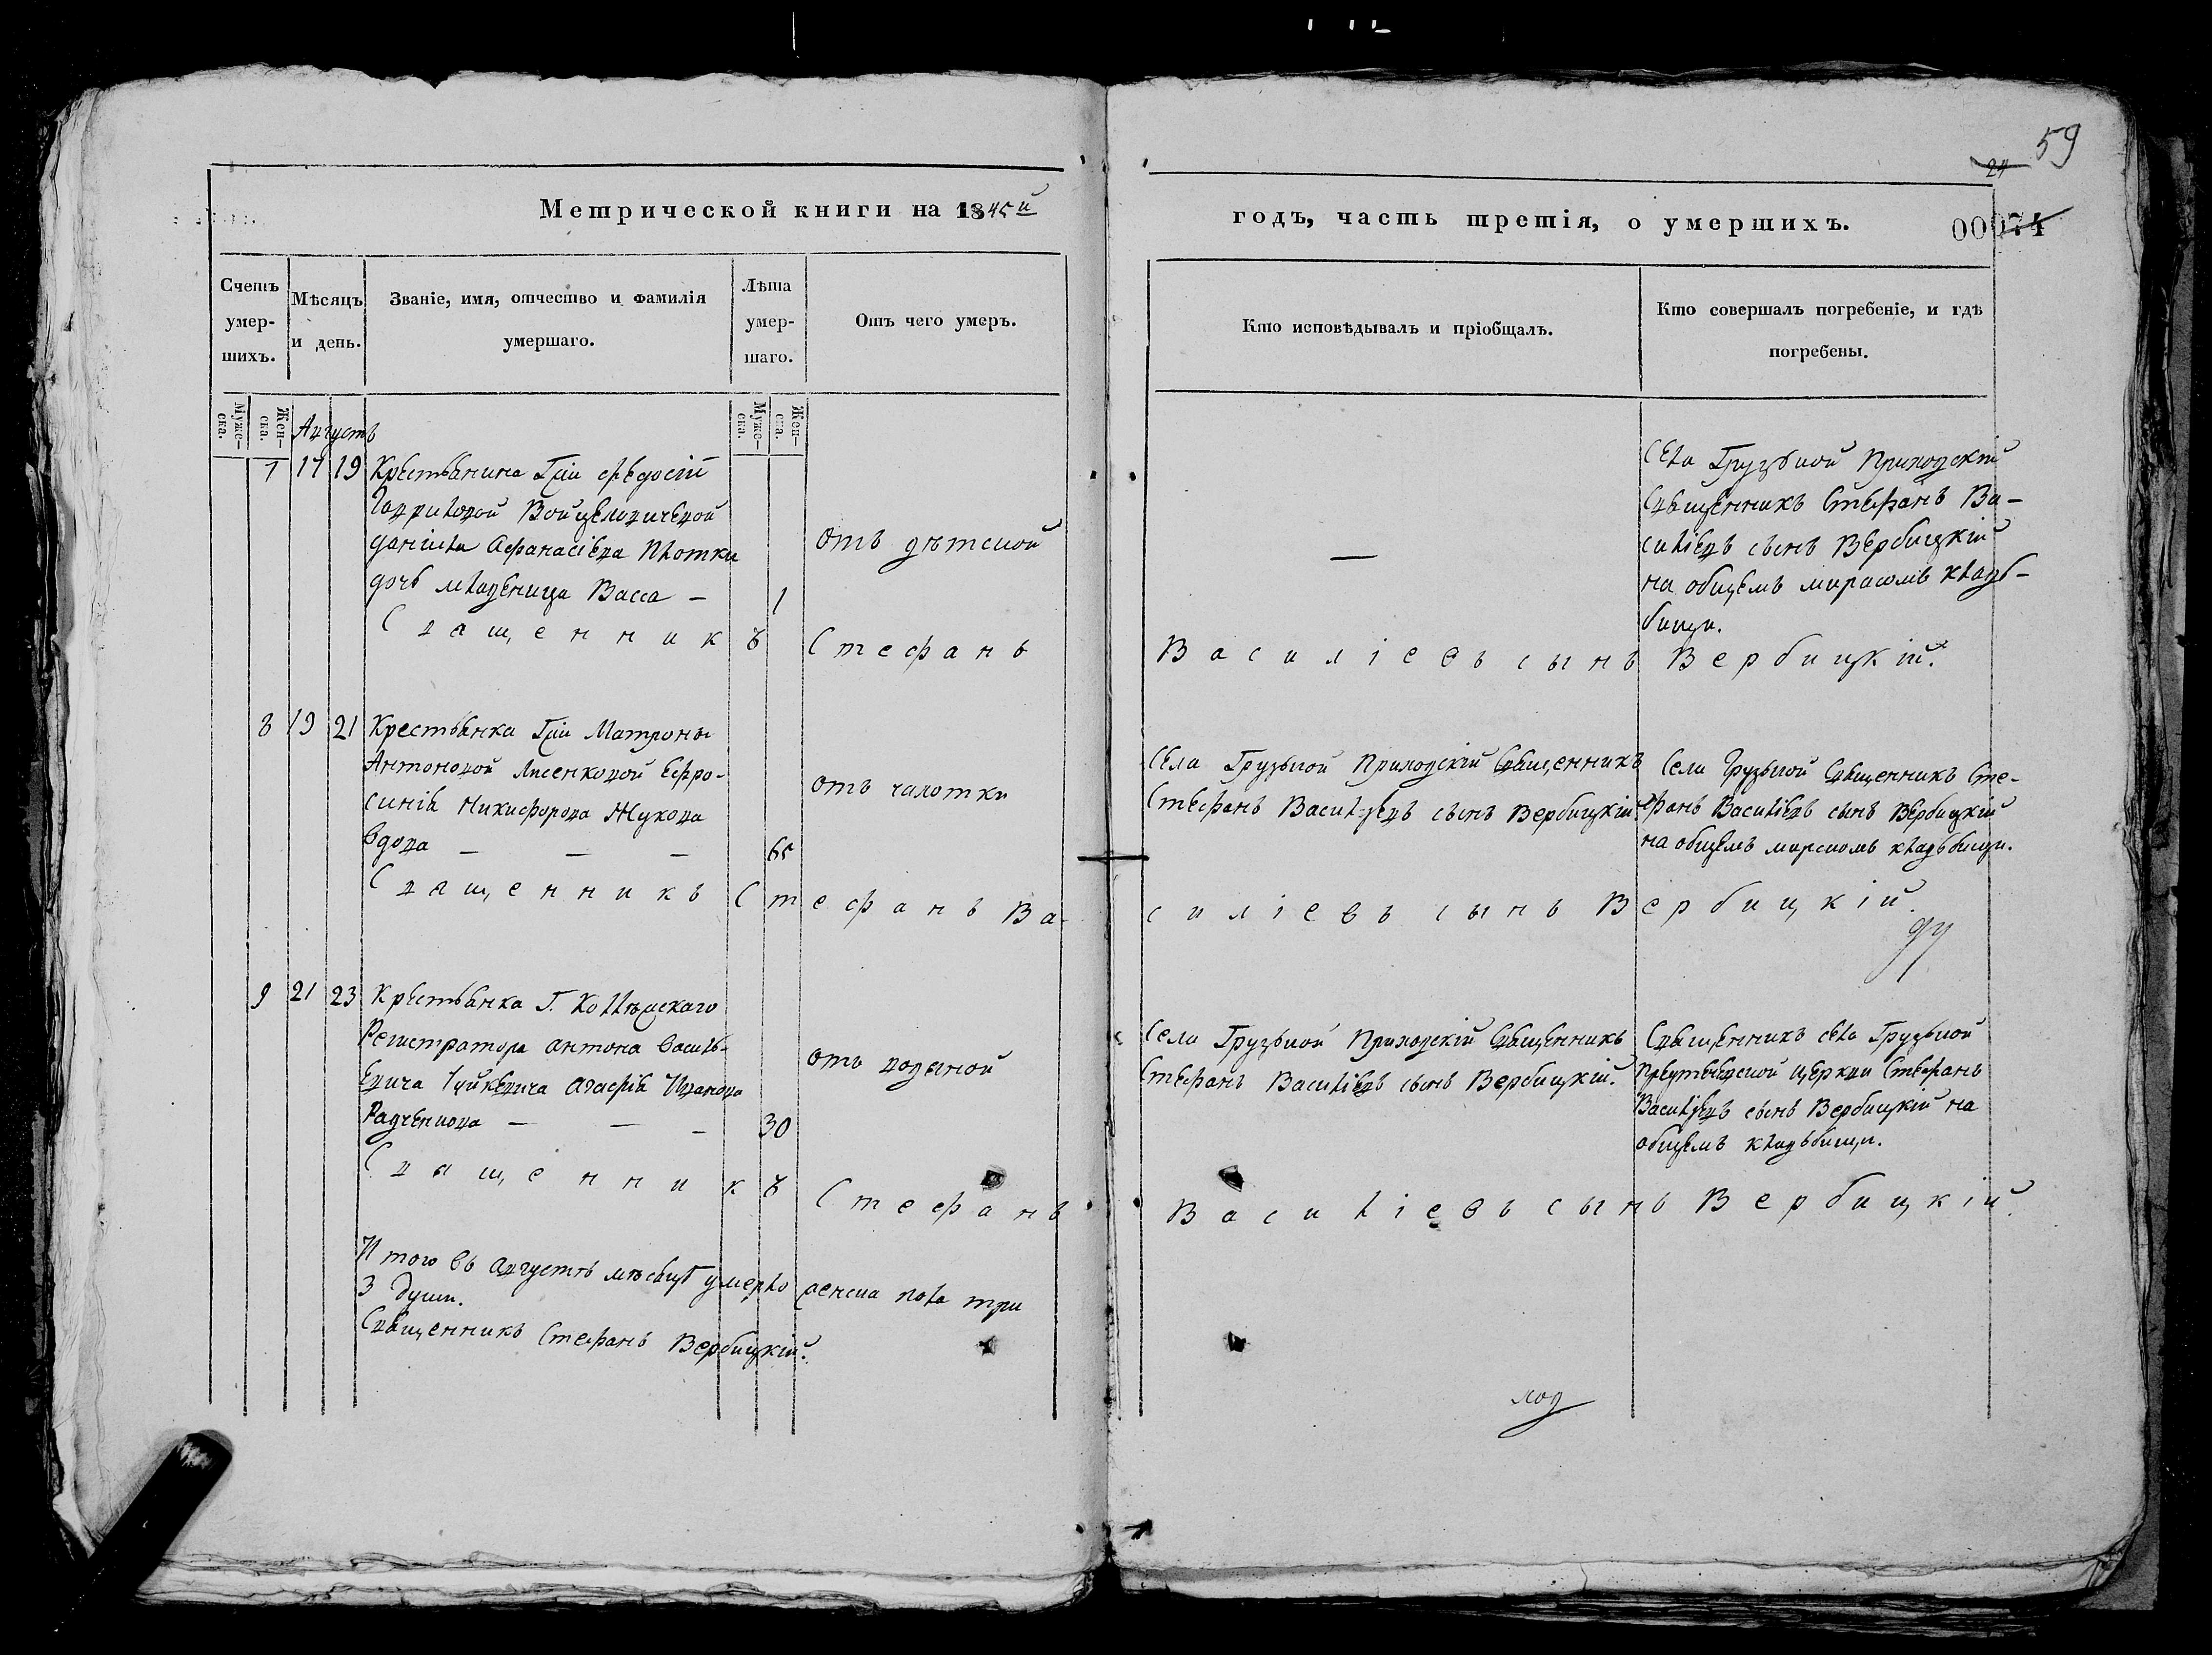 59
24
00074
Метрической книги на 1845й
годъ, часть третія, о умершихъ.
Счетъ умер-шихъ.
Мѣсяцъ и день.
Званіе, имя, отчество и фамилія умершаго.
Лѣта умер-шаго.
Отъ чего умеръ.
Кто исповѣдывалъ и пріобщалъ.
Кто совершалъ погребеніе, и гдѣ погребены.
Муже-ска.
Жен-ска.
Муже-ска.
Жен-ска.
Августъ
7 17 19 Крестьянина Гжи Ѳедосіи
Гавриловой Войцеховичевой
Даніила Афанасіева Плотки
дочь младеница Васса — 1
отъ дѣтской
—
Села Грузьной Приходскій
Священникъ Стефанъ Ва-
силіевъ сынъ Вербицкій
на общемъ мирскомъ кладъ-
бищи.
Священникъ Стефанъ Василіевъ сынъ Вербицкій.
8 19 21 Крестьянка Гжи Матроны
Антоновой Лисенковой Ефро-
синія Никифорова Жукова
вдова — — — 65
отъ чахотки
Села Грузьной Приходскій Священникъ
Стефанъ Василіевъ сынъ Вербицкій.
Села Грузьной Священникъ Сте-
фанъ Василіевъ сынъ Вербицкій
на общемъ мирскомъ кладьбищи.
Священникъ Стефанъ Василіевъ сынъ Вербицкій.
9 21 23 Крестьянка Г. Коллежскаго
Регистратора Антона Василь-
евича Агафія Иванова
Радченкова — — — 30
отъ водяной
Села Грузьной Приходскій Священникъ
Стефанъ Василіевъ сынъ Вербицкій.
Священникъ села Грузьной
церкви Стефанъ
Василіевъ сынъ Вербицкій на
общемъ кладьбищи.
Священникъ Стефанъ Василіевъ сынъ Вербицкій.
Итого въ Августѣ мѣсяцѣ умерло женска пола три
3 души.
Священникъ Стефанъ Вербицкій.